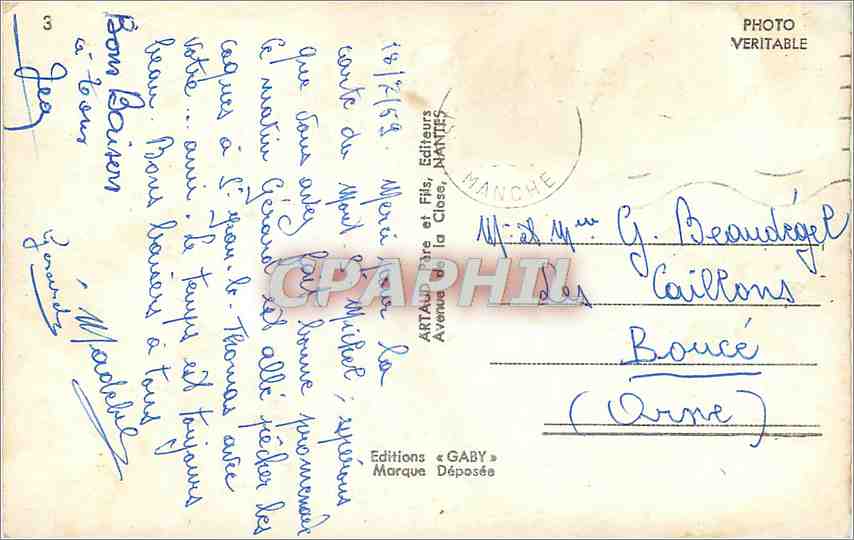 3
PHOTO
VERITABLE
18/7/59. Merci pour la
carte du Mont St Michel ; espérons
que vous avez fait bonne promenade
Ce matin Gérard est allé pêcher les
coques à St Jean-le-Thomas avec
votre... ami. Le temps est toujours
beau. Bons baisers à tous
Madeleine
Gérard
Bons Baisers
à tous
ARTAUD Père et Fils, Editeurs
Avenue de la Close, NANTES
MANCHE
Mr et Mme G. Beaudégel
Les Caillons
Boucé
(Orne)
Editions « GABY »
Marque Déposée
CPAPHIL